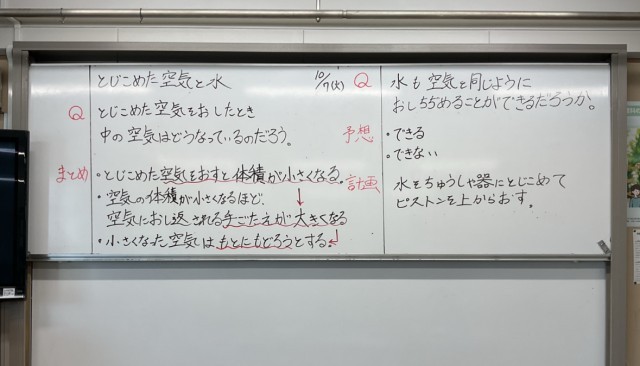 とじこめた空気と水 10/7(火)
Q とじこめた空気をおしたとき
中の空気はどうなっているのだろう。
まとめ ・とじこめた空気をおすと体積が小さくなる。
・空気の体積が小さくなるほど、
空気におし返される手ごたえが大きくなる
・小さくなった空気はもとにもどろうとする
Q 水も空気と同じように
おしちぢめることができるだろうか。
予想 ・できる
・できない
計画 水をちゅうしゃ器にとじこめて
ピストンを上からおす。